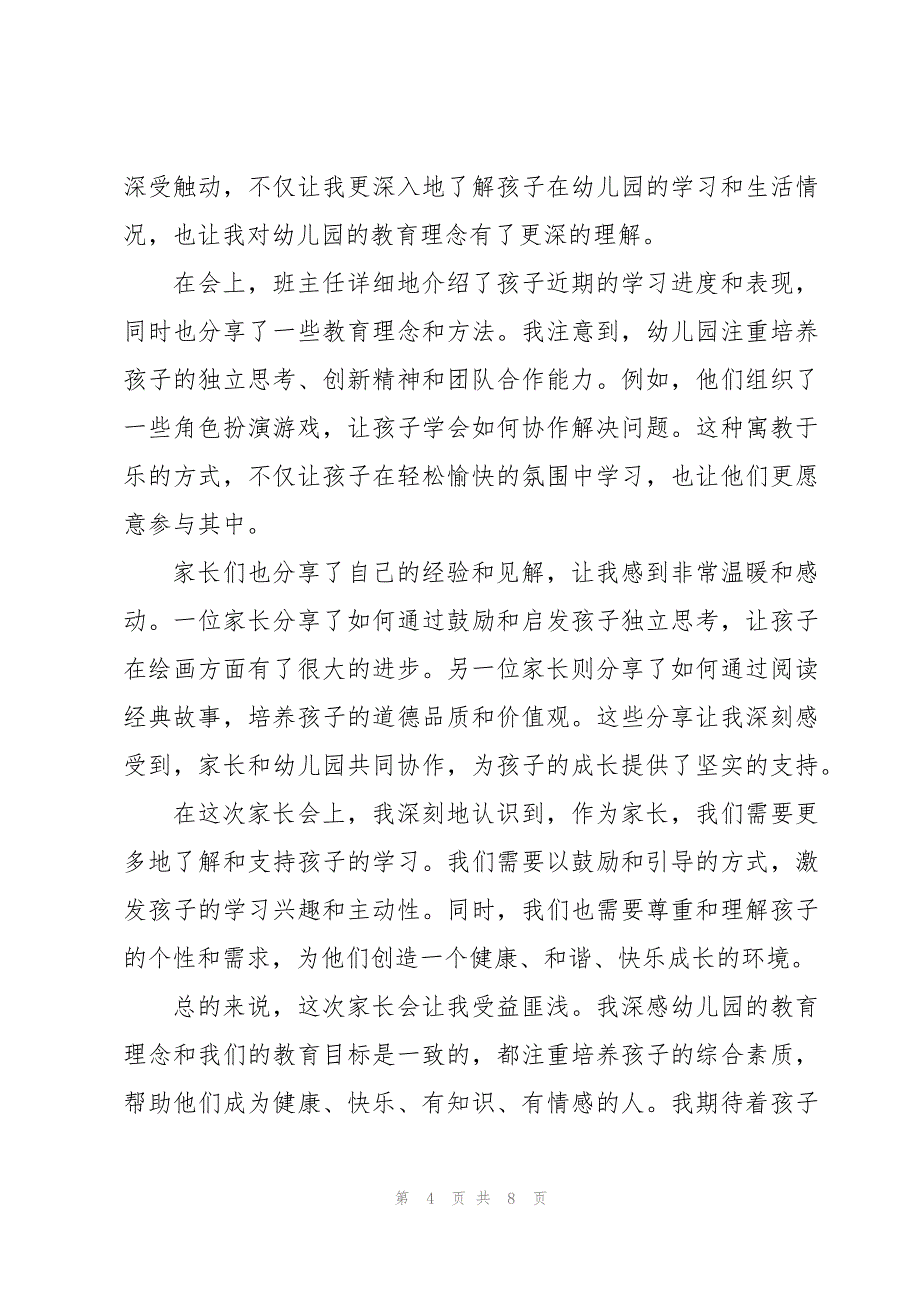 深受触动，不仅让我更深入地了解孩子在幼儿园的学习和生活情
况，也让我对幼儿园的教育理念有了更深的理解。
在会上，班主任详细地介绍了孩子近期的学习进度和表现，
同时也分享了一些教育理念和方法。我注意到，幼儿园注重培养
孩子的独立思考、创新精神和团队合作能力。例如，他们组织了
一些角色扮演游戏，让孩子学会如何协作解决问题。这种寓教于
乐的方式，不仅让孩子在轻松愉快的氛围中学习，也让他们更愿
意参与其中。
家长们也分享了自己的经验和见解，让我感到非常温暖和感
动。一位家长分享了如何通过鼓励和启发孩子独立思考，让孩子
在绘画方面有了很大的进步。另一位家长则分享了如何通过阅读
经典故事，培养孩子的道德品质和价值观。这些分享让我深刻感
受到，家长和幼儿园共同协作，为孩子的成长提供了坚实的支持。
在这次家长会上，我深刻地认识到，作为家长，我们需要更
多地了解和支持孩子的学习。我们需要以鼓励和引导的方式，激
发孩子的学习兴趣和主动性。同时，我们也需要尊重和理解孩子
的个性和需求，为他们创造一个健康、和谐、快乐成长的环境。
总的来说，这次家长会让我受益匪浅。我深感幼儿园的教育
理念和我们的教育目标是一致的，都注重培养孩子的综合素质，
帮助他们成为健康、快乐、有知识、有情感的人。我期待着孩子
第 4 页 共 8 页